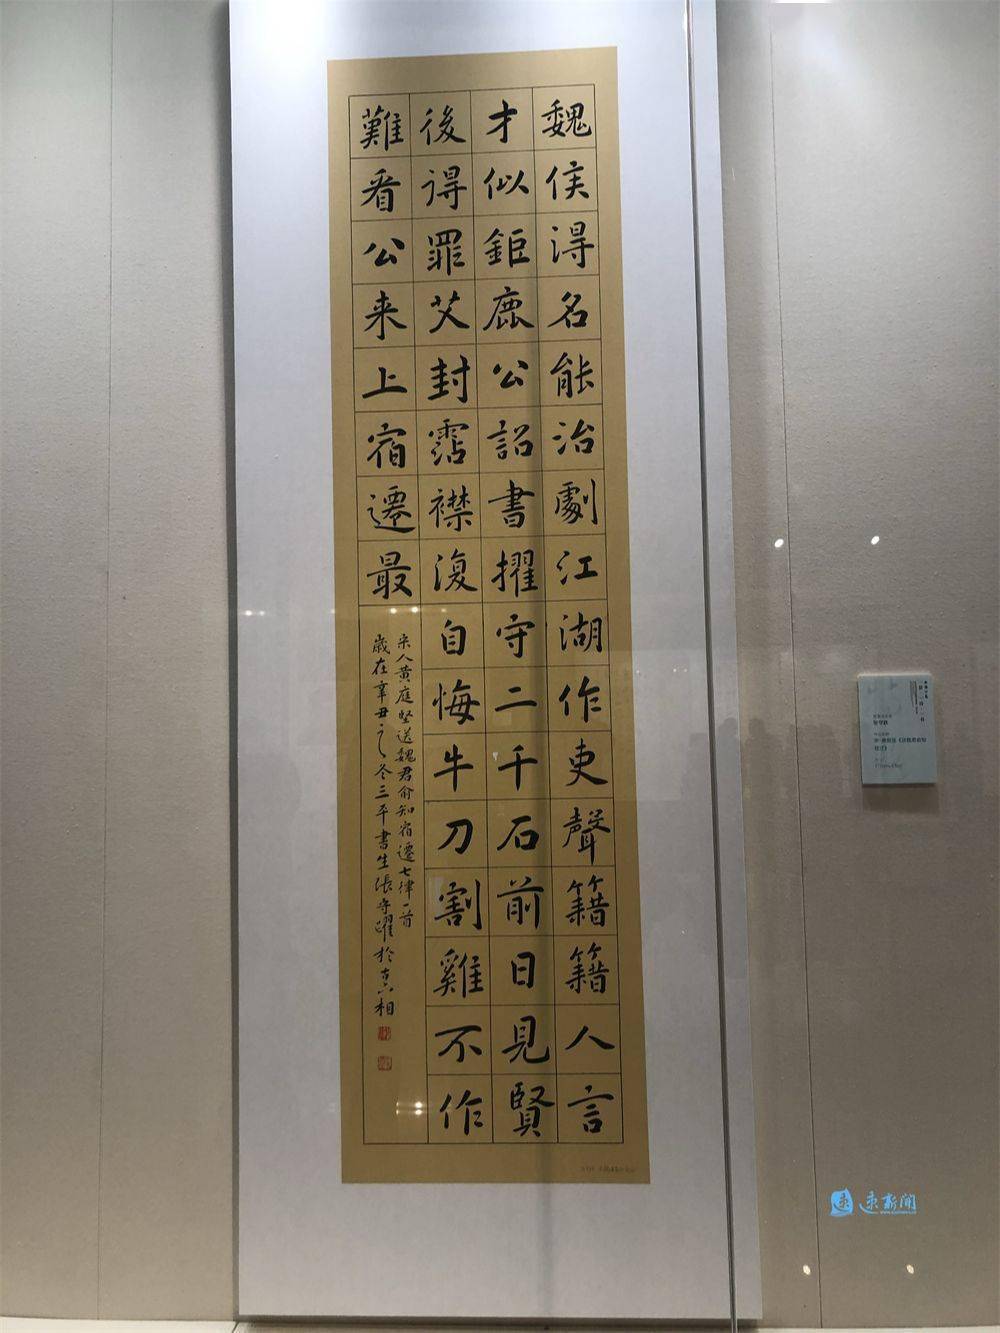 魏侯得名能治劇江湖作吏聲籍籍人言
才似鉅鹿公詔書擢守二千石前日見賢
後得罪艾封霑襟復自悔牛刀割雞不作
難看公来上宿遷最
宋人黄庭堅送魏君俞知宿遷七律一首
歲在辛丑之冬三平書生張守躍於古相
速新闻